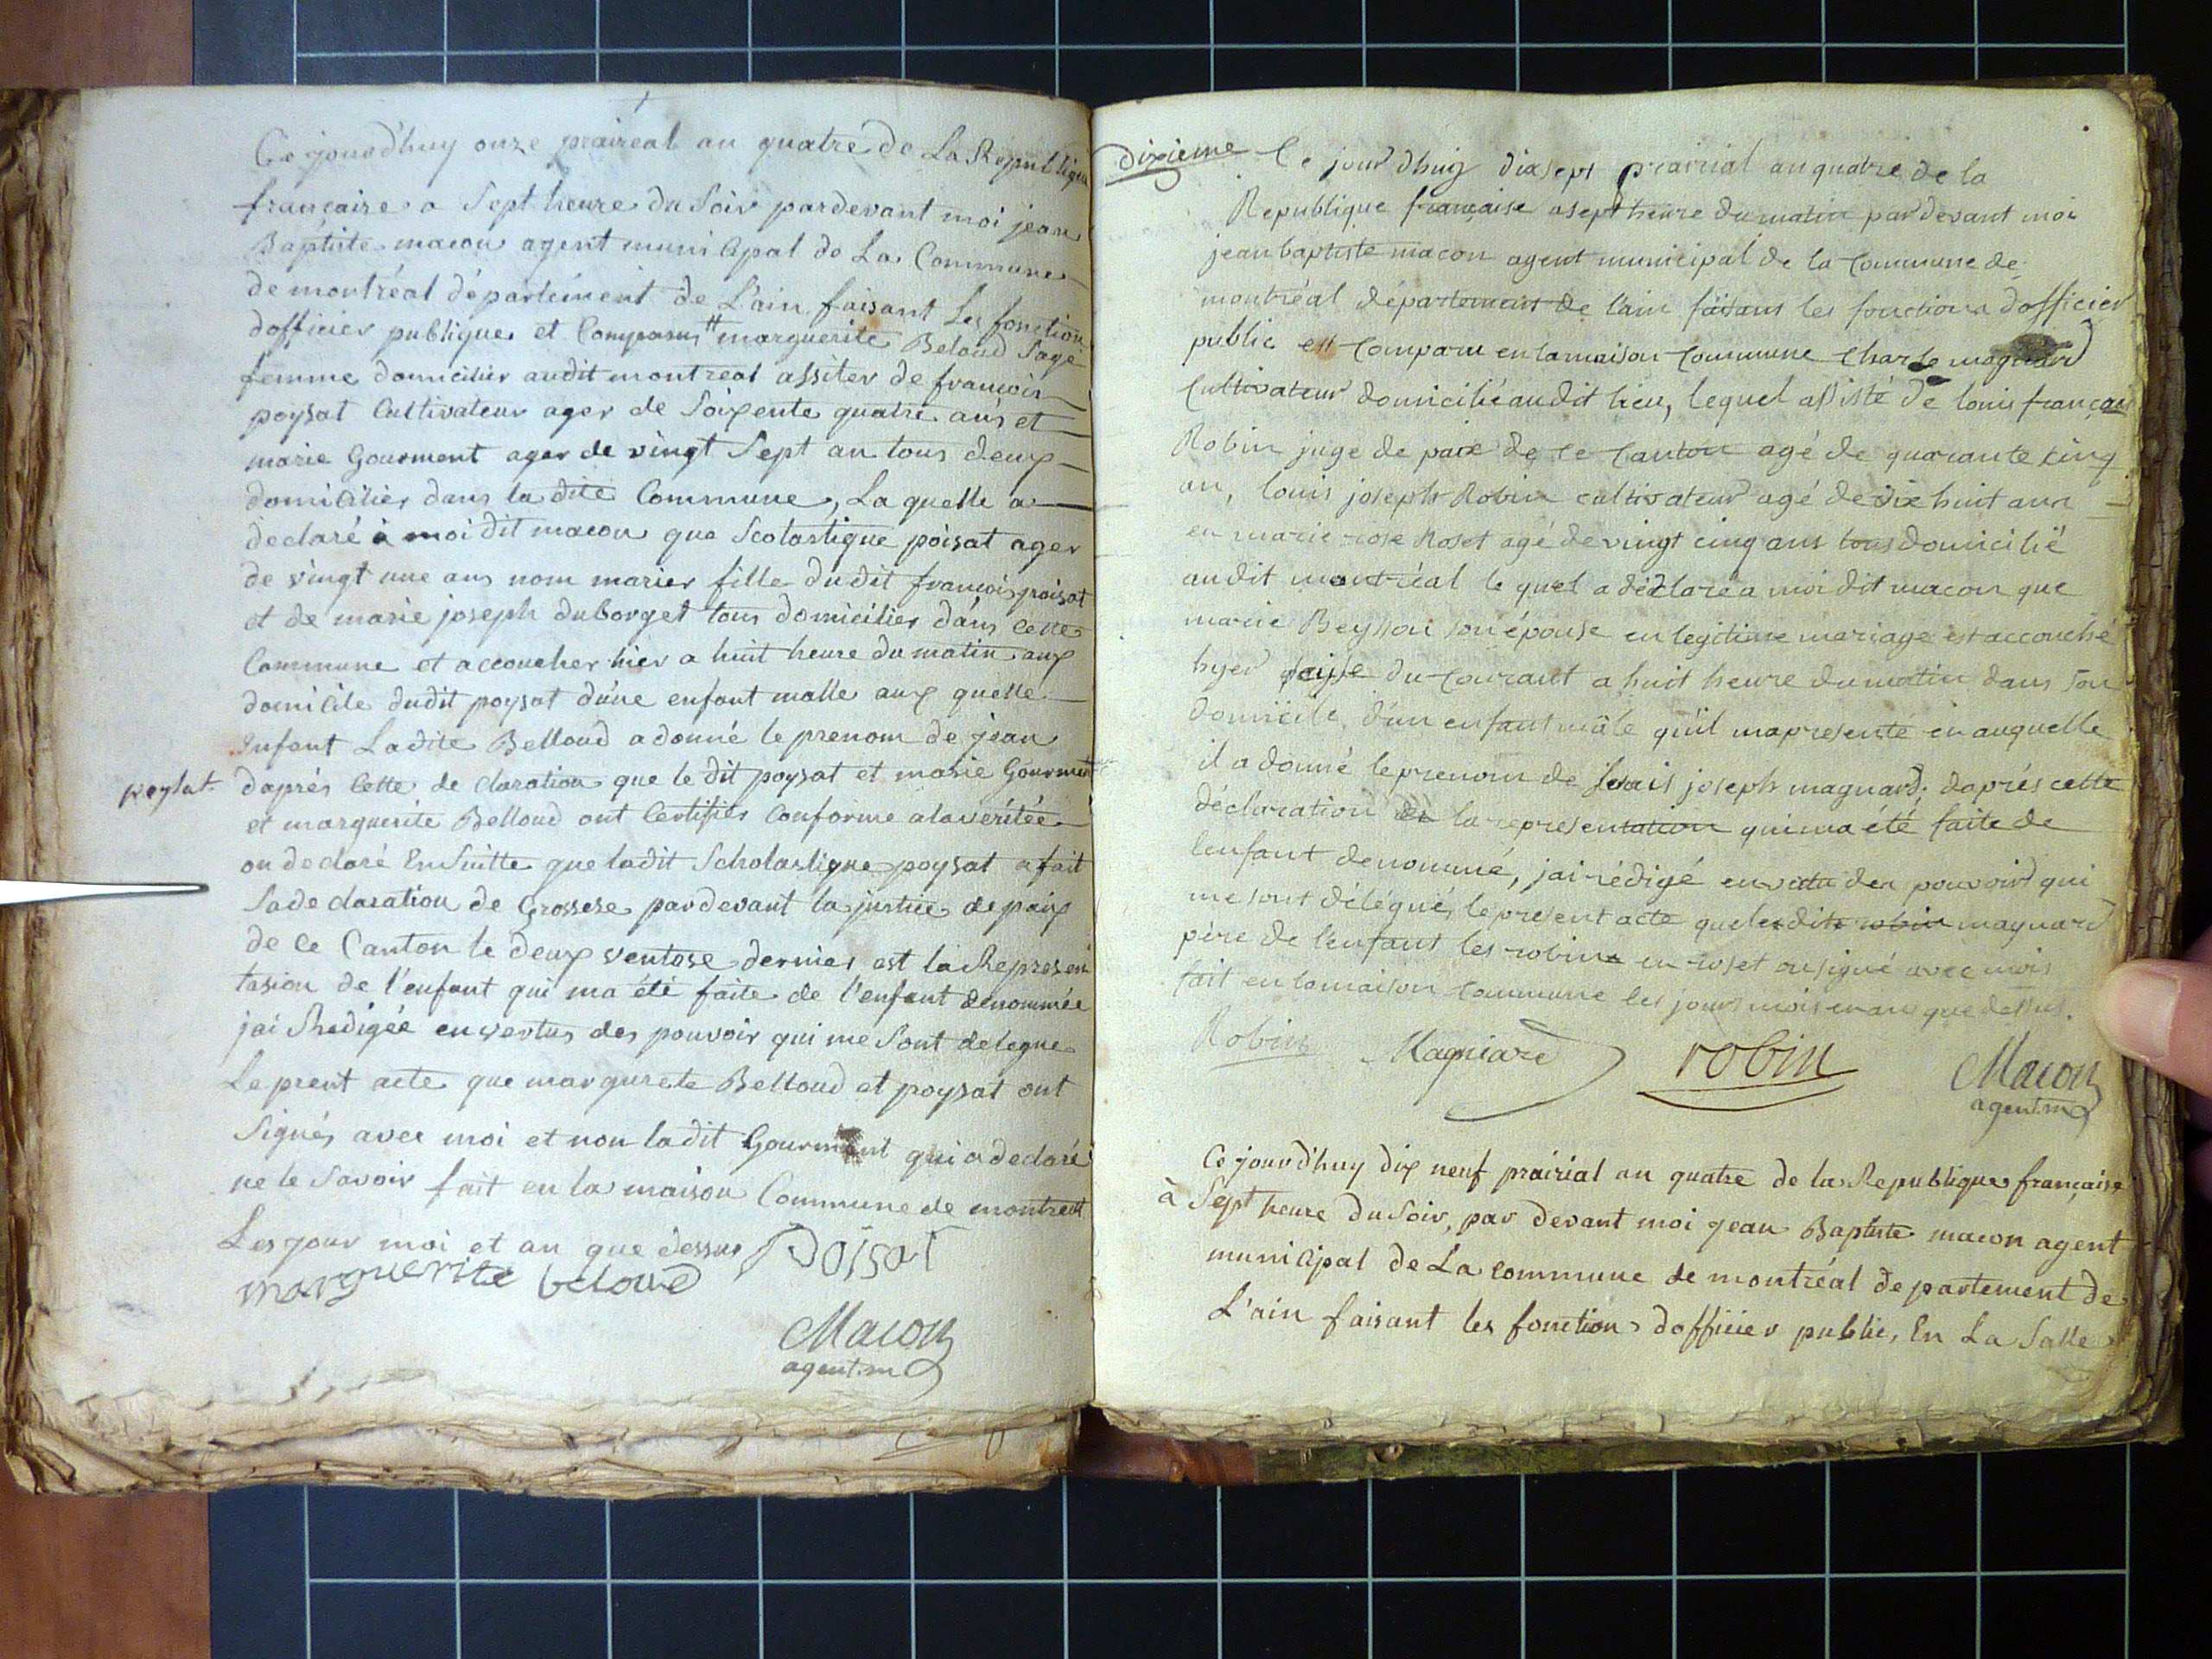 Ce jourd'huy onze prairéal an quatre de La Republique
francaire a Sept heure du Soir pardevant moi jean
Baptiste macon agent municipal de La Commune
de montréal département de L'ain faisant Les fonction
dofficier publique et Comparus marguerite Beloud Sage
femme domicilier audit montreal assiter de francois
poysat Cultivateur ager de Soixente quatre ans et
marie Gourment ager de vingt Sept an tous deux
domicilier dans la dite Commune, La quelle a
declaré à moi dit macon que Scolastique poisat ager
de vingt une ans nom marier fille dudit francois poisat
et de marie joseph duborget tous domicilier dans cette
Commune et accoucher hier a huit heure du matin aux
domicile dudit poysat dúne enfant malle aux quelle
Enfant Ladite Belloud a donné le prenom de jean
poysat
daprés Cette de claration que le dit poysat et marie Gourment
et marguerite Belloud ont Certifiés Conforme a la véritée
on declaré Ensuitte que ladit Scholastique poysat a fait
Sa declaration de Grossese pardevant la justice de paix
de ce Canton le deux ventose dernier est la Represen
tasion de l'enfant qui ma été faite de l'enfant denommée
jai Redigée en vertus des pouvoir qui me Sont delegue
Le prent acte que margurete Belloud et poysat ont
Signés avec moi et non ladit Gourment qui a declaré
ne le Savoir fait en la maison Commune de montreal
Les jour moi et an que dessus Poisat
marguerite beloud
Macon
agent m
dixieme Ce jour dhuij dixsept prairial an quatre de la
Republique française a sept heure du matin par devant moi
jean baptiste macon agent municipal de la Commune de
montréal département de l'ain faisans les fonctions dofficier
public est Comparu en la maison Commune Charle magnard
Cultivateur domicilié audit lieu, lequel assisté de louis françois
Robin juge de paix de ce Canton agé de quarante cinq
an, louis joseph Robin cultivateur agé de dix huit ans
en marie rose Roset agé de vingt cinq ans tous domicilié
audit montréal le quel a déclaré a moi dit macon que
marie Beysson son épouse en legitime mariage est accouché
hyer seize du Courant a huit heure du matin dans son
domicile d'un enfant mâle qu'il ma presenté en auquelle
il a donné le prenom de louis joseph magnard, daprés cette
déclaration la representation qui ma été faite de
l'enfant denommé, jai rédigé en vertu des pouvoir qui
me sont délégué, le present acte que lesdits robin magnard
père de l'enfant les robins en roset on signé avec moi
fait en la maison Commune les jours mois en an que dessus.
Robin Magniard robin Macon
agent m
Ce jourd'huy dix neuf prairial an quatre de la Republique française
à Sept heure du Soir, par devant moi jean Baptiste macon agent
municipal de La commune de montréal departement de
L'ain faisant les fonction dofficier public, En La Salle